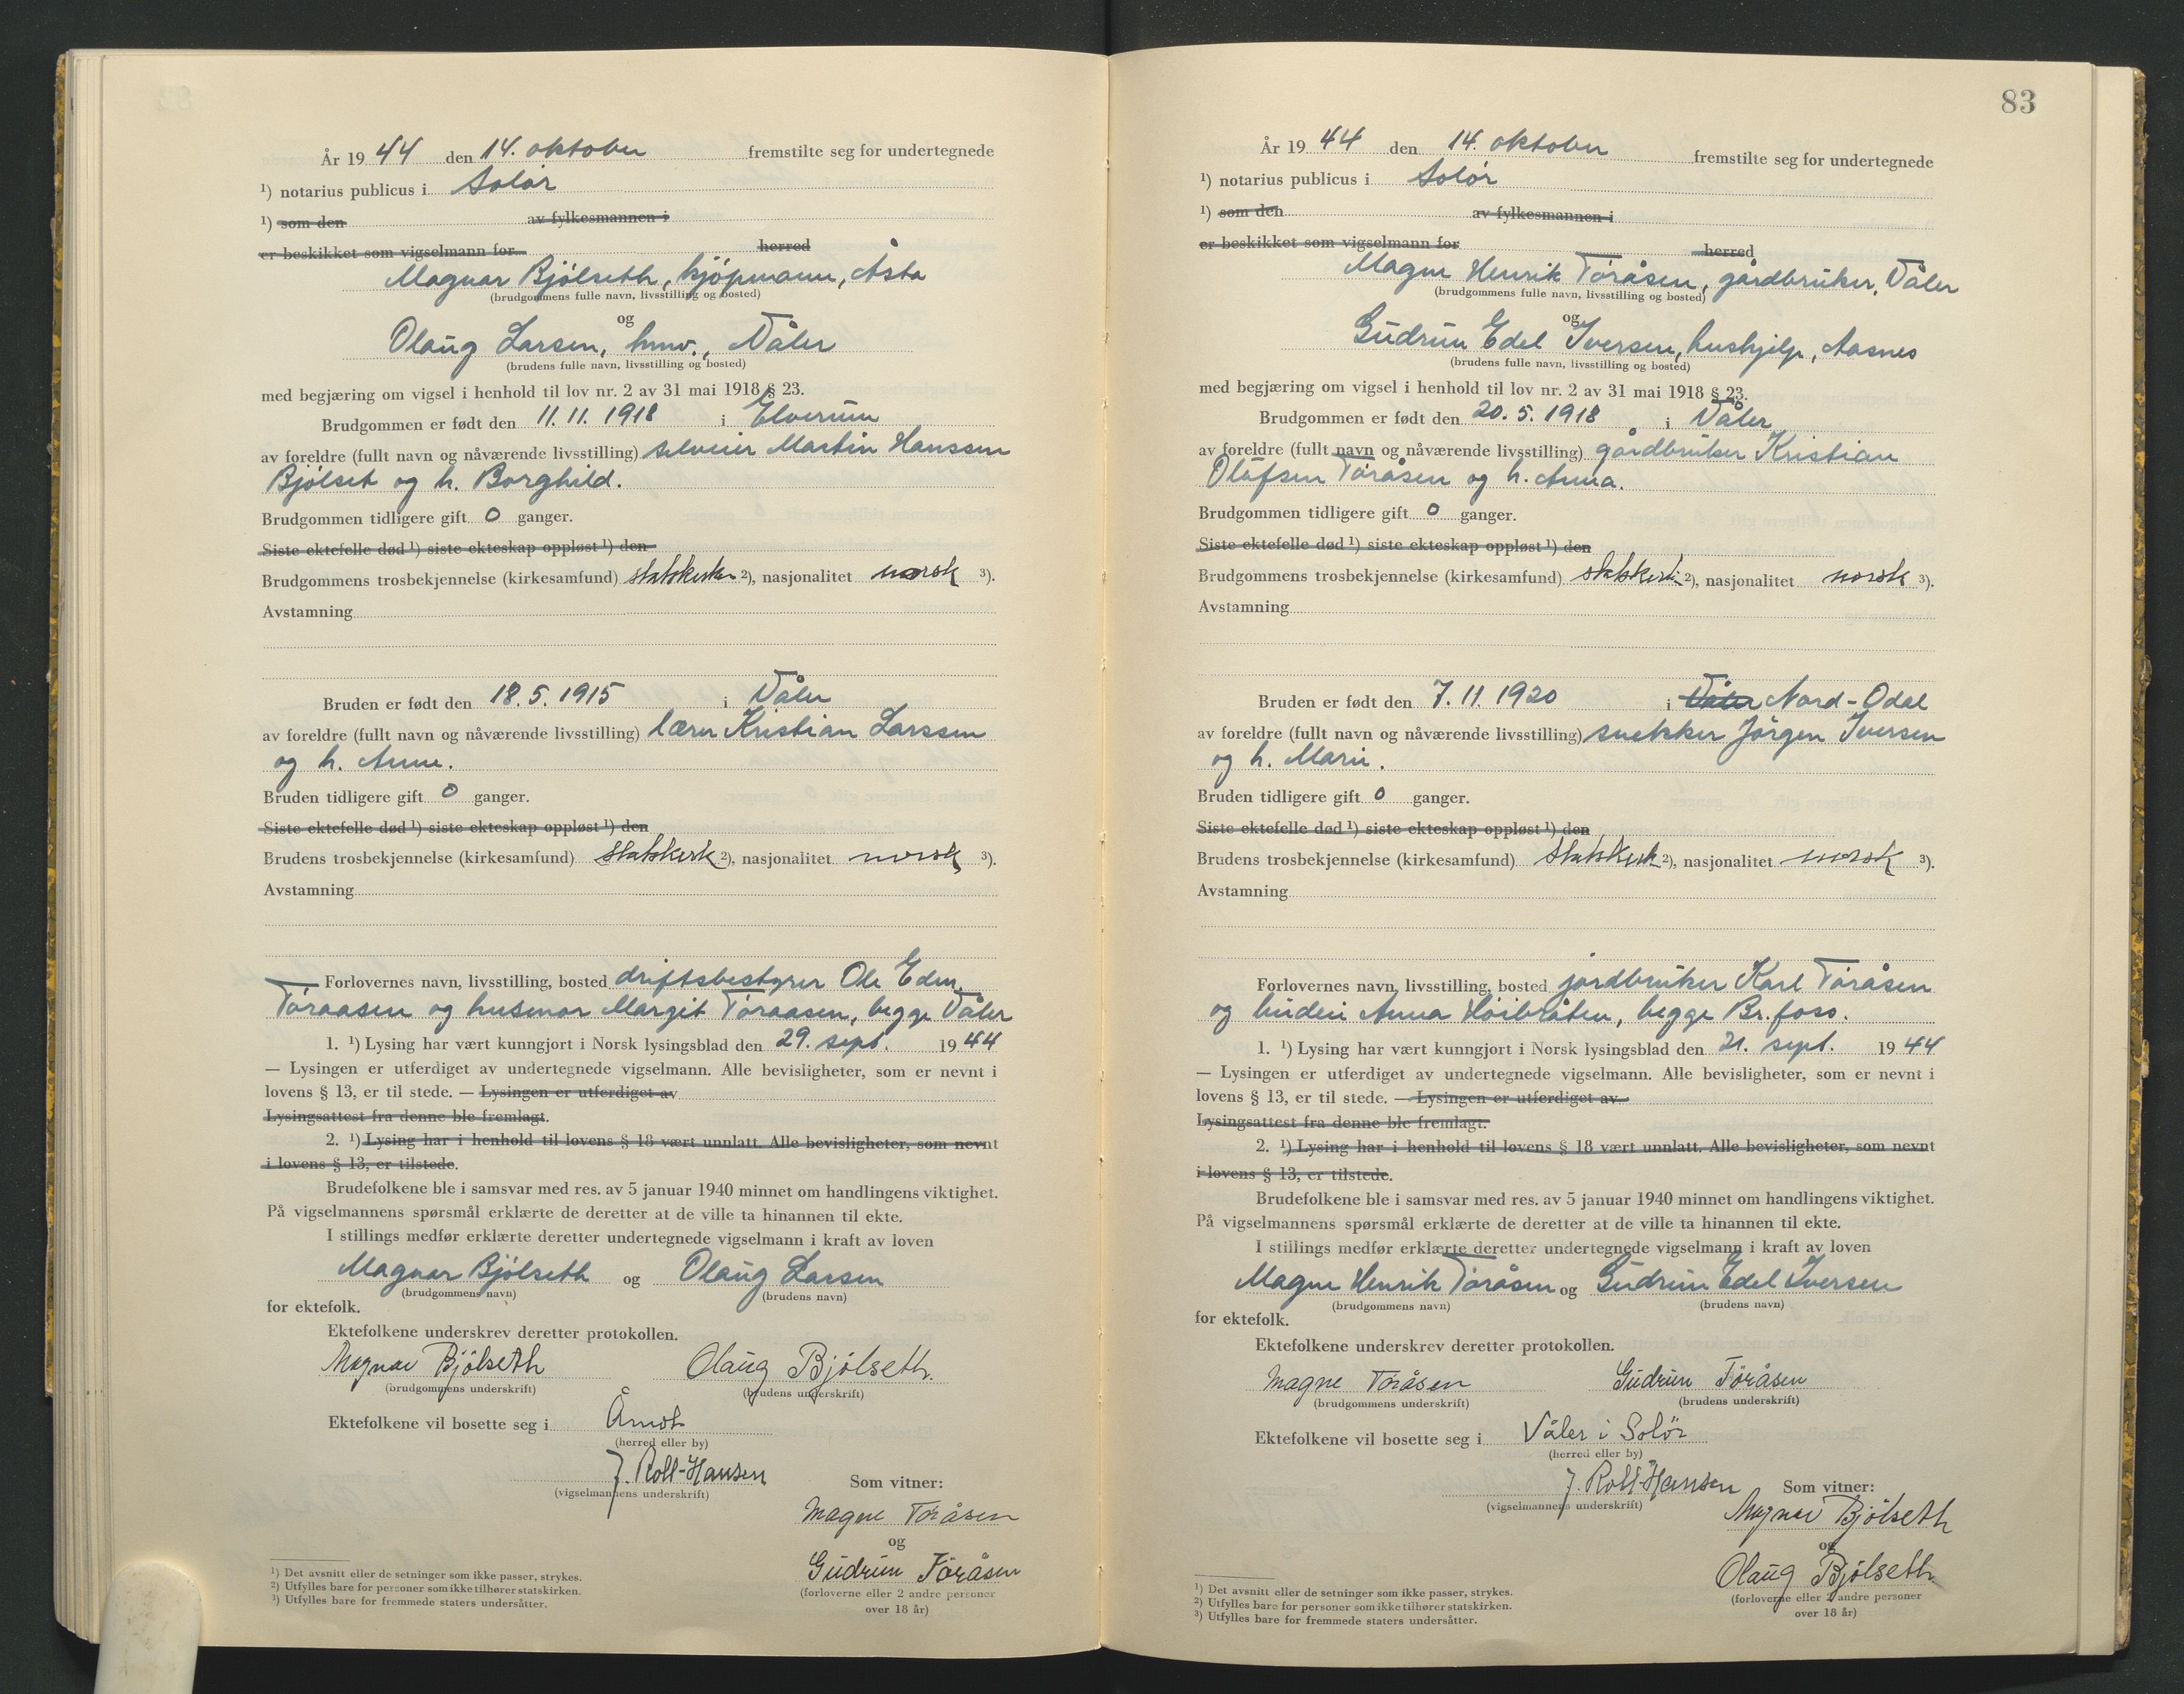 År 19 44 den 14. oktober fremstilte seg for undertegnede
¹) notarius publicus i Solør
¹) som den av fylkesmannen i
er beskikket som vigselmann for herred
Magnar Bjølseth, kjøpmann, Åsta
(brudgommens fulle navn, livsstilling og bosted)
og
Olaug Larsen, hmv., Våler
(brudens fulle navn, livsstilling og bosted)
med begjæring om vigsel i henhold til lov nr. 2 av 31 mai 1918 § 23.
Brudgommen er født den 11.11.1918 i Elverum
av foreldre (fullt navn og nåværende livsstilling) selveier Martin Hanssen
Bjølset og h. Borghild.
Brudgommen tidligere gift 0 ganger.
Siste ektefelle død ¹) siste ekteskap oppløst ¹) den
Brudgommens trosbekjennelse (kirkesamfund) statskirken ²), nasjonalitet norsk ³).
Avstamning
Bruden er født den 18.5.1915 i Våler
av foreldre (fullt navn og nåværende livsstilling) lærer Kristian Larssen
og h. Anne.
Bruden tidligere gift 0 ganger.
Siste ektefelle død ¹) siste ekteskap oppløst ¹) den
Brudens trosbekjennelse (kirkesamfund) statskirk ²), nasjonalitet norsk ³).
Avstamning
Forlovernes navn, livsstilling, bosted driftsbestyrer Ole Edin
Toraasen og husmor Margit Toraasen, begge Våler
1. ¹) Lysing har vært kunngjort i Norsk lysingsblad den 29. sept. 19 44
— Lysingen er utferdiget av undertegnede vigselmann. Alle bevisligheter, som er nevnt i
lovens § 13, er til stede. — Lysingen er utferdiget av
Lysingsattest fra denne ble fremlagt.
2. ¹) Lysing har i henhold til lovens § 18 vært unnlatt. Alle bevisligheter, som nevnt
i lovens § 13, er tilstede.
Brudefolkene ble i samsvar med res. av 5 januar 1940 minnet om handlingens viktighet.
På vigselmannens spørsmål erklærte de deretter at de ville ta hinannen til ekte.
I stillings medfør erklærte deretter undertegnede vigselmann i kraft av loven
Magnar Bjølseth og Olaug Larsen
(brudgommens navn) (brudens navn)
for ektefolk.
Ektefolkene underskrev deretter protokollen.
Magnar Bjølseth Olaug Bjølseth.
(brudgommens underskrift) (brudens underskrift)
Ektefolkene vil bosette seg i Åmot
(herred eller by)
J. Roll-Hansen
(vigselmannens underskrift)
Som vitner:
Magne Toråsen
og
Gudrun Toråsen
(forloverne eller 2 andre personer
over 18 år)
¹) Det avsnitt eller de setninger som ikke passer, strykes.
²) Utfylles bare for personer som ikke tilhører statskirken.
³) Utfylles bare for fremmede staters undersåtter.
83
År 19 44 den 14. oktober fremstilte seg for undertegnede
¹) notarius publicus i Solør
¹) som den av fylkesmannen i
er beskikket som vigselmann for herred
Magne Henrik Toråsen, gårdbruker, Våler
(brudgommens fulle navn, livsstilling og bosted)
og
Gudrun Edel Iversen, hushjelp, Aasnes
(brudens fulle navn, livsstilling og bosted)
med begjæring om vigsel i henhold til lov nr. 2 av 31 mai 1918 § 23.
Brudgommen er født den 20.5.1918 i Våler
av foreldre (fullt navn og nåværende livsstilling) gårdbruker Kristian
Olufsen Toråsen og h. Anna.
Brudgommen tidligere gift 0 ganger.
Siste ektefelle død ¹) siste ekteskap oppløst ¹) den
Brudgommens trosbekjennelse (kirkesamfund) statskirk. ²), nasjonalitet norsk ³).
Avstamning
Bruden er født den 7.11.1920 i Våler Nord-Odal
av foreldre (fullt navn og nåværende livsstilling) snekker Jørgen Iversen
og h. Marie.
Bruden tidligere gift 0 ganger.
Siste ektefelle død ¹) siste ekteskap oppløst ¹) den
Brudens trosbekjennelse (kirkesamfund) statskirk ²), nasjonalitet norsk ³).
Avstamning
Forlovernes navn, livsstilling, bosted jordbruker Karl Toråsen
og budeie Anna Høibråten, begge Br.foss.
1. ¹) Lysing har vært kunngjort i Norsk lysingsblad den 21. sept. 19 44
— Lysingen er utferdiget av undertegnede vigselmann. Alle bevisligheter, som er nevnt i
lovens § 13, er til stede. — Lysingen er utferdiget av
Lysingsattest fra denne ble fremlagt.
2. ¹) Lysing har i henhold til lovens § 18 vært unnlatt. Alle bevisligheter, som nevnt
i lovens § 13, er tilstede.
Brudefolkene ble i samsvar med res. av 5 januar 1940 minnet om handlingens viktighet.
På vigselmannens spørsmål erklærte de deretter at de ville ta hinannen til ekte.
I stillings medfør erklærte deretter undertegnede vigselmann i kraft av loven
Magne Henrik Toråsen og Gudrun Edel Iversen
(brudgommens navn) (brudens navn)
for ektefolk.
Ektefolkene underskrev deretter protokollen.
Magne Toråsen Gudrun Toråsen
(brudgommens underskrift) (brudens underskrift)
Ektefolkene vil bosette seg i Våler i Solör
(herred eller by)
J. Roll-Hansen
(vigselmannens underskrift)
Som vitner:
Magnar Bjølseth
og
Olaug Bjølseth
(forloverne eller 2 andre personer
over 18 år)
¹) Det avsnitt eller de setninger som ikke passer, strykes.
²) Utfylles bare for personer som ikke tilhører statskirken.
³) Utfylles bare for fremmede staters undersåtter.